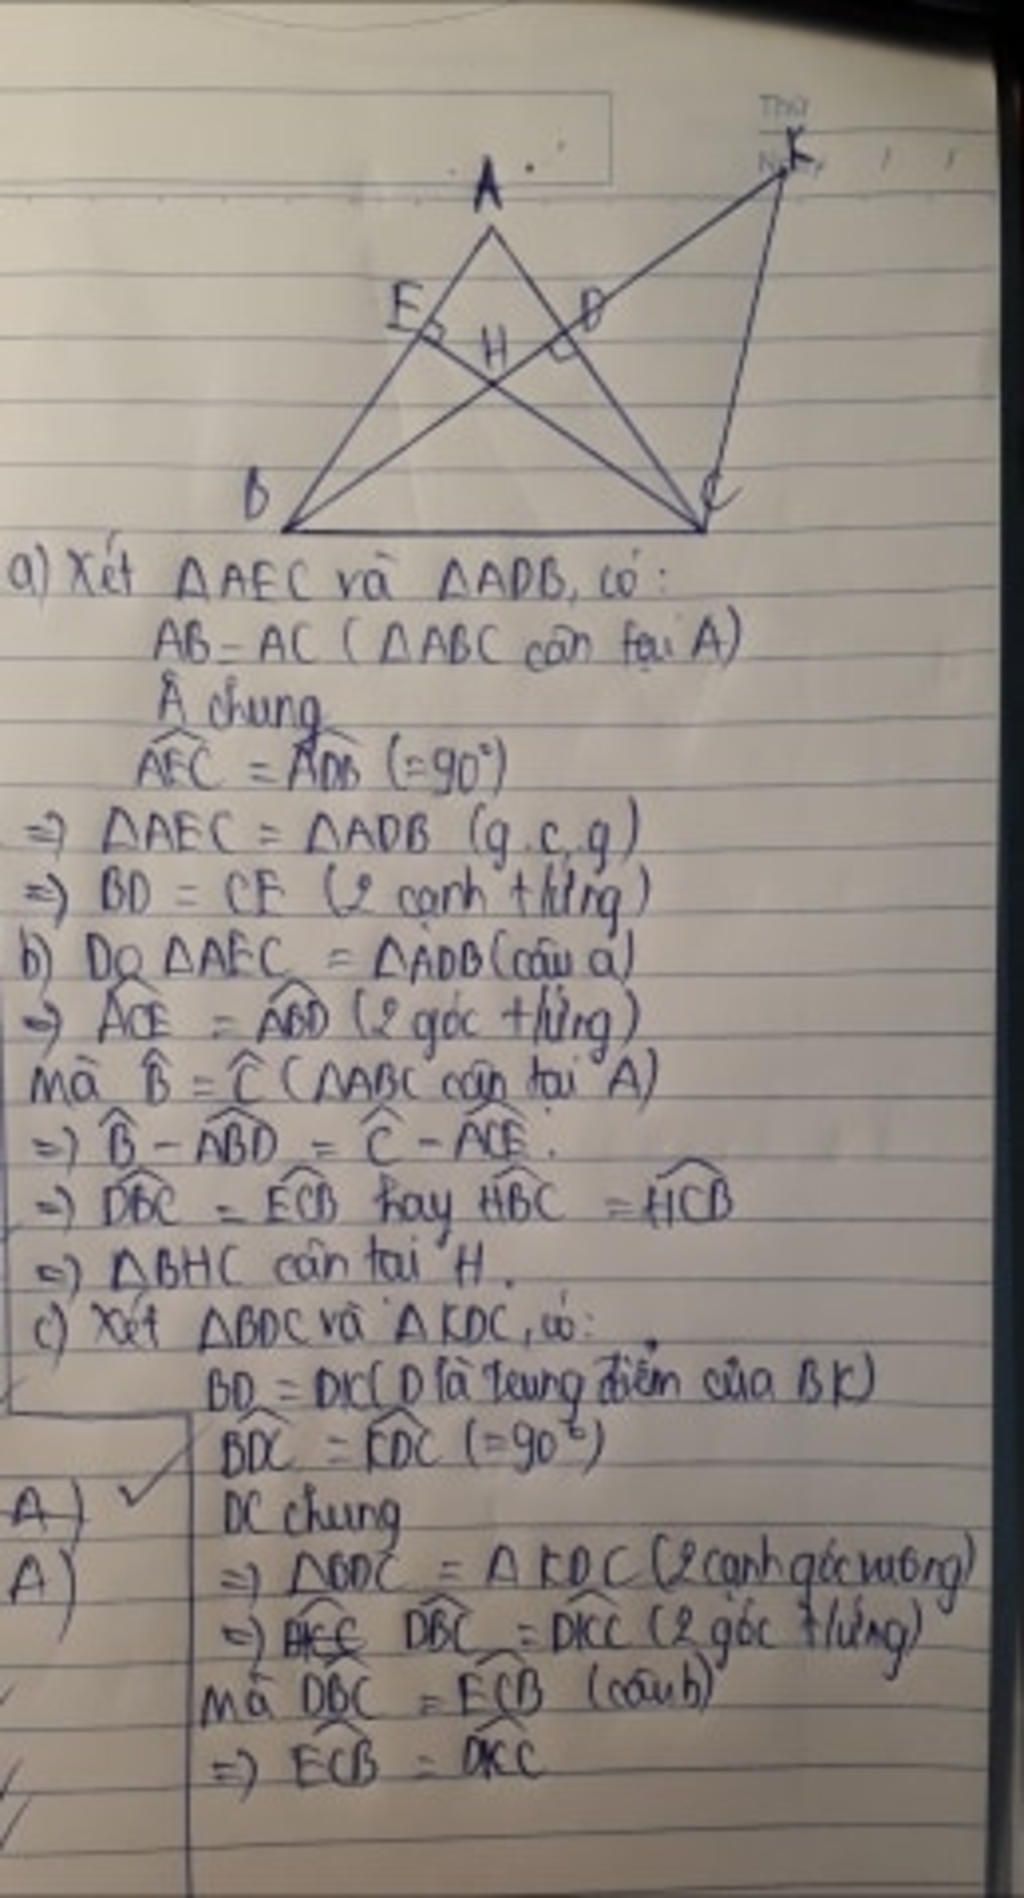 Thứ
K
A
E
H
D
B
C
a) Xét ΔAEC và ΔADB, có:
AB = AC (ΔABC cân tại A)
Â chung
AEC = ADB (=90°)
=> ΔAEC = ΔADB (g.c.g)
=> BD = CE (2 cạnh t/ứng)
b) Do ΔAEC = ΔADB (câu a)
=> ACE = ABD (2 góc t/ứng)
Mà B̂ = Ĉ (ΔABC cân tại A)
=> B̂ - ABD = Ĉ - ACE.
=> DBC = ECB hay HBC = HCB
=> ΔBHC cân tại H.
c) Xét ΔBDC và ΔKDC, có:
BD = DK (D là trung điểm của BK)
BDC = KDC (=90°)
DC chung
=> ΔBDC = ΔKDC (2 cạnh góc vuông)
=> DBC = DKC (2 góc t/ứng)
Mà DBC = ECB (câu b)
=> ECB = DKC
A)
A)